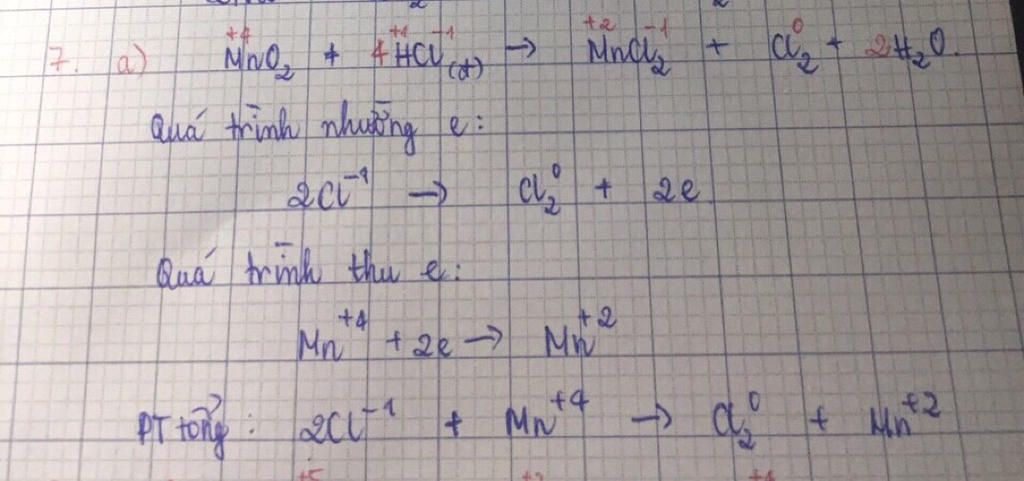 7. a) MnO₂ + 4HCl(đ) → MnCl₂ + Cl₂ + 2H₂O.
+4 +1 -1 +2 -1 0
Quá trình nhường e:
2Cl⁻¹ → Cl₂⁰ + 2e
Quá trình thu e:
Mn⁺⁴ + 2e → Mn⁺²
PT tổng: 2Cl⁻¹ + Mn⁺⁴ → Cl₂⁰ + Mn⁺²